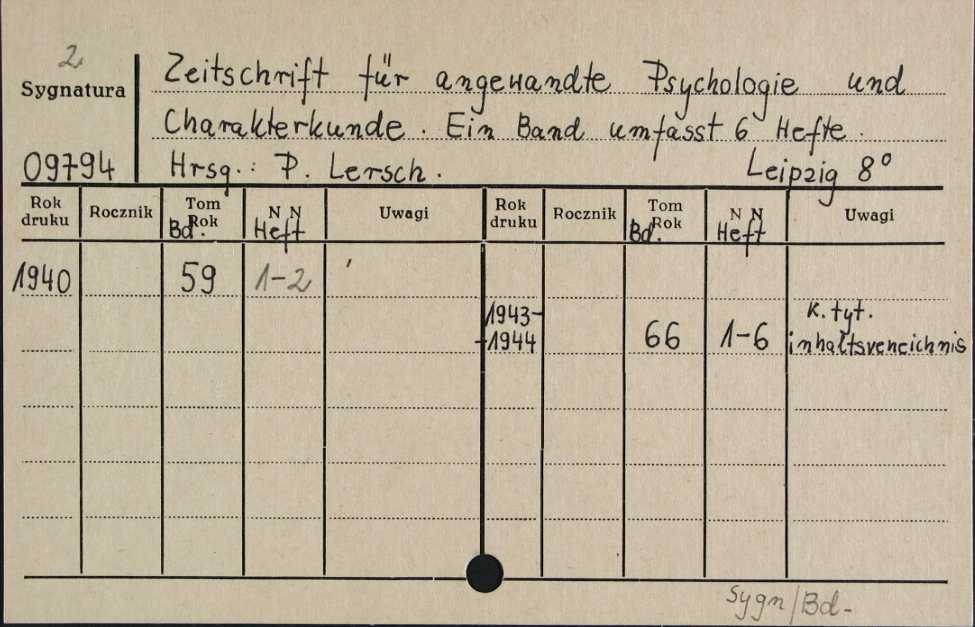 2
Sygnatura
Zeitschrift für angewandte Psychologie und
Charakterkunde. Ein Band umfasst 6 Hefte.
09794
Hrsg.: P. Lersch. Leipzig 8°
Rok druku Rocznik Tom Rok Bd. N N Heft Uwagi Rok druku Rocznik Tom Rok Bd. N N Heft Uwagi
1940 59 1-2
1943-
-1944 66 1-6 K. tyt. inhaltsverzeichnis
Sygn/Bd-